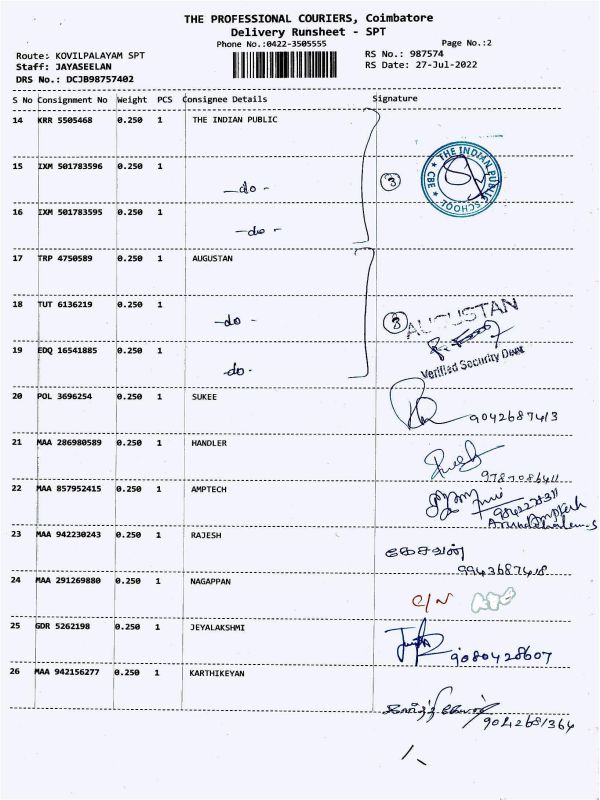 THE PROFESSIONAL COURIERS, Coimbatore
Delivery Runsheet - SPT
Phone No.:0422-3505555
Page No.:2
Route: KOVILPALAYAM SPT
RS No.: 987574
Staff: JAYASEELAN
RS Date: 27-Jul-2022
DRS No.: DCJB98757402
S No Consignment No Weight PCS Consignee Details Signature
14 KRR 5505468 0.250 1 THE INDIAN PUBLIC
15 IXM 501783596 0.250 1
-do-
3
THE INDIAN PUBLIC SCHOOL CBE
16 IXM 501783595 0.250 1
-do-
17 TRP 4750589 0.250 1 AUGUSTAN
18 TUT 6136219 0.250 1
-do-
3
AUGUSTAN
19 EDQ 16541885 0.250 1
-do-
Verified Security Dept
20 POL 3696254 0.250 1 SUKEE
9042687413
21 MAA 286980589 0.250 1 HANDLER
22 MAA 857952415 0.250 1 AMPTECH
23 MAA 942230243 0.250 1 RAJESH
கேசவன்
9943687418
24 MAA 291269880 0.250 1 NAGAPPAN
C/N
25 GDR 5262198 0.250 1 JEYALAKSHMI
9080428607
26 MAA 942156277 0.250 1 KARTHIKEYAN
9042681364